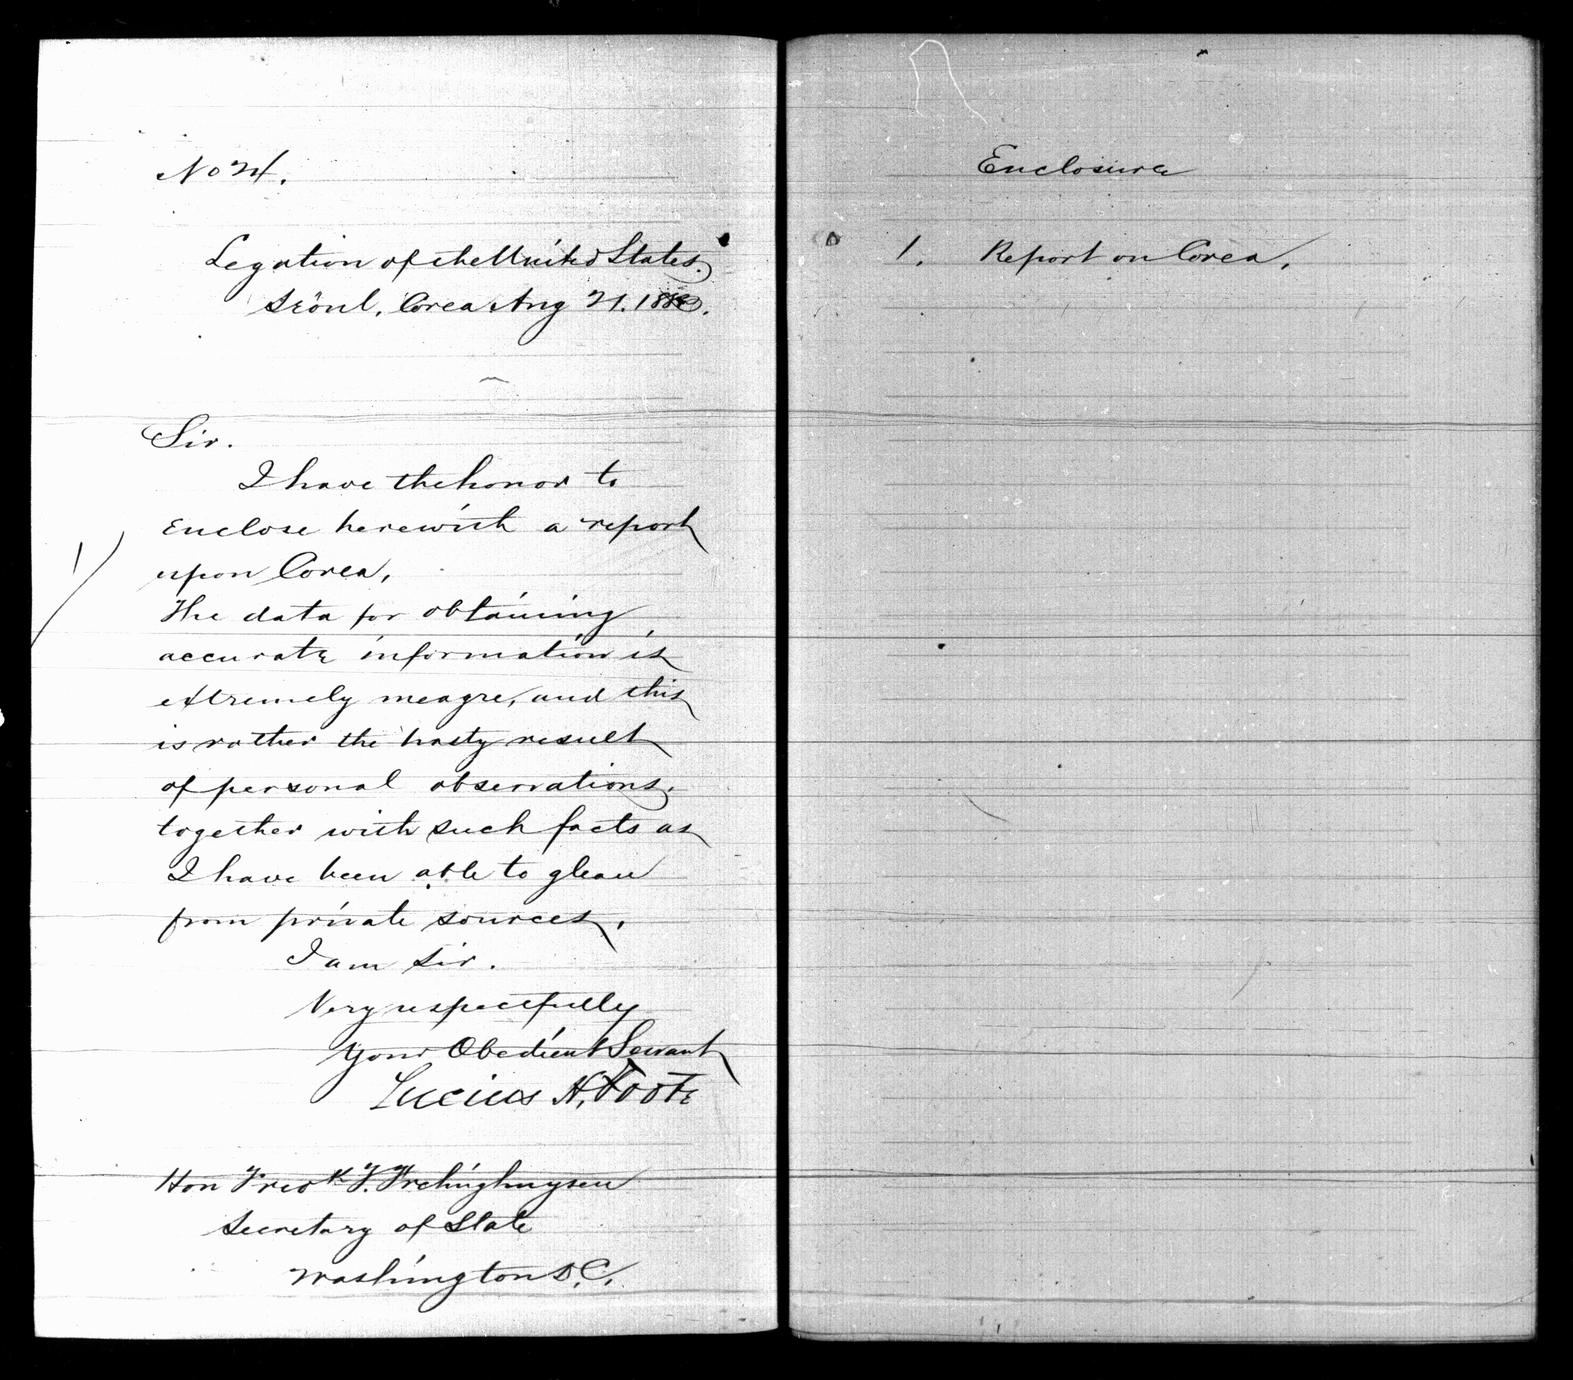 No 24.
Legation of the United States.
Sëoul, Corea Aug 21. 1883.
Sir.
I have the honor to
enclose herewith a report
upon Corea.
The data for obtaining
accurate information is
extremely meagre, and this
is rather the hasty result
of personal observations,
together with such facts as
I have been able to glean
from private sources.
I am Sir.
Very respectfully
Your Obedient Servant
Lucius H. Foote
Hon Fredk F. Frelinghuysen
Secretary of State
Washington D.C.
Enclosure
1. Report on Corea.